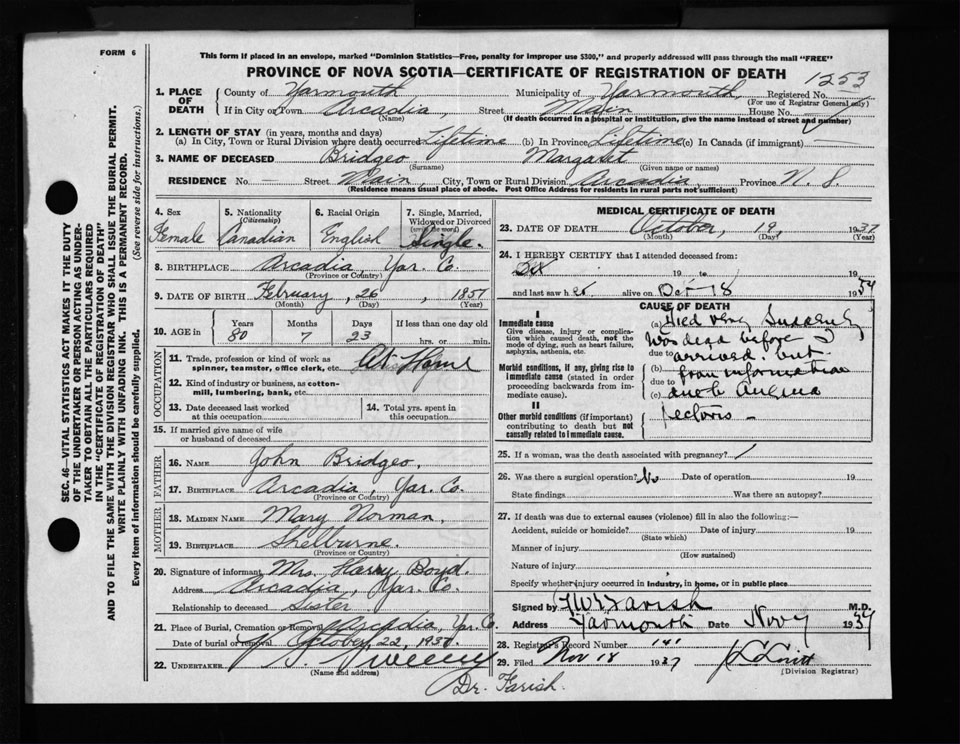 FORM 6
This form if placed in an envelope, marked "Dominion Statistics—Free, penalty for improper use $300," and properly addressed will pass through the mail "FREE"
PROVINCE OF NOVA SCOTIA—CERTIFICATE OF REGISTRATION OF DEATH
1253
1. PLACE OF DEATH County of Yarmouth Municipality of Yarmouth Registered No.
(For use of Registrar General only)
If in City or Town Arcadia, Street Main House No.
(Name) (If death occurred in a hospital or institution, give the name instead of street and number)
2. LENGTH OF STAY (in years, months and days)
(a) In City, Town or Rural Division where death occurred Lifetime (b) In Province Lifetime (c) In Canada (if immigrant) —
3. NAME OF DECEASED Bridgeo Margaret
(Surname) (Given name or names)
RESIDENCE No. — Street Main, City, Town or Rural Division Arcadia, Province N. S.
(Residence means usual place of abode. Post Office Address for residents in rural parts not sufficient)
SEC. 46—VITAL STATISTICS ACT MAKES IT THE DUTY
OF THE UNDERTAKER OR PERSON ACTING AS UNDER-
TAKER TO OBTAIN ALL THE PARTICULARS REQUIRED
IN THE "CERTIFICATE OF REGISTRATION OF DEATH"
AND TO FILE THE SAME WITH THE DIVISION REGISTRAR WHO SHALL ISSUE THE BURIAL PERMIT.
WRITE PLAINLY WITH UNFADING INK. THIS IS A PERMANENT RECORD.
Every item of information should be carefully supplied. (See reverse side for instructions.)
4. Sex 5. Nationality 6. Racial Origin 7. Single, Married,
(Citizenship) Widowed or Divorced
(write the word)
Female Canadian English Single.
8. BIRTHPLACE Arcadia, Yar. Co.
(Province or Country)
9. DATE OF BIRTH February, 26, 1857
(Month) (Day) (Year)
10. AGE in Years Months Days If less than one day old
80 7 23 hrs. or min.
OCCUPATION
11. Trade, profession or kind of work as
spinner, teamster, office clerk, etc. At Home
12. Kind of industry or business, as cotton-
mill, lumbering, bank, etc.
13. Date deceased last worked
at this occupation
14. Total yrs. spent in
this occupation
15. If married give name of wife
or husband of deceased
FATHER
16. NAME John Bridgeo,
17. BIRTHPLACE Arcadia, Yar. Co.
(Province or Country)
MOTHER
18. MAIDEN NAME Mary Norman,
19. BIRTHPLACE Shelburne.
(Province or Country)
20. Signature of informant Mrs. Harry Boyd.
Address Arcadia, Yar. Co.
Relationship to deceased Sister
21. Place of Burial, Cremation or Removal Arcadia, Yar. Co.
Date of burial or removal October, 22, 1937
22. UNDERTAKER Sweeny
(Name and address)
Dr. Farish.
MEDICAL CERTIFICATE OF DEATH
23. DATE OF DEATH October, 19, 1937
(Month) (Day) (Year)
24. I HEREBY CERTIFY that I attended deceased from:
19 to 19
and last saw her alive on Oct 18 1937
CAUSE OF DEATH
I
Immediate cause
Give disease, injury or complica-
tion which caused death, not the
mode of dying, such as heart failure,
asphyxia, asthenia, etc.
Morbid conditions, if any, giving rise to
immediate cause (stated in order
proceeding backwards from im-
mediate cause).
II
Other morbid conditions (if important)
contributing to death but not
causally related to immediate cause.
(a) Died very Suddenly
Was dead before I
due to arrived. but
(b) from information
due to
(c) Angina
pectoris —
25. If a woman, was the death associated with pregnancy?
26. Was there a surgical operation? No Date of operation 19
State findings Was there an autopsy?
27. If death was due to external causes (violence) fill in also the following:—
Accident, suicide or homicide? Date of injury 19
(State which)
Manner of injury
(How sustained)
Nature of injury
Specify whether injury occurred in industry, in home, or in public place
Signed by Farish M.D.
Address Yarmouth Date Nov 9 1937
28. Registrar's Record Number 141
29. Filed Nov 18 1937
(Division Registrar)